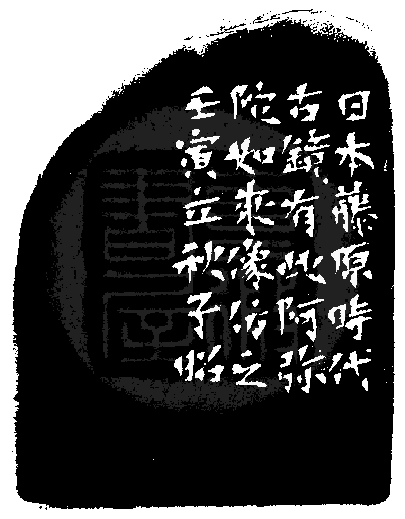 日本藤原時代
古鏡有此阿弥
陀如來像仿之
壬寅立秋子昭